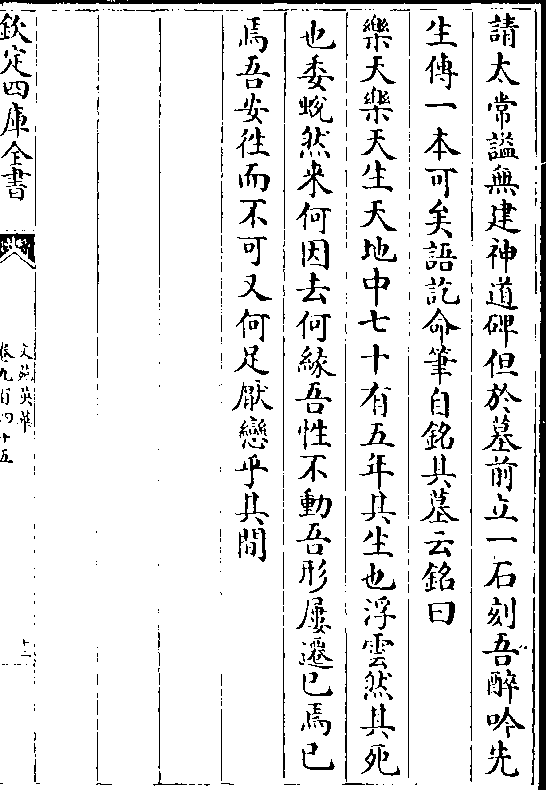 請太常謚無建神道碑但於墓前立一石刻吾醉吟先
生傳一本可矣語訖命筆自銘其墓云銘曰
樂天樂天生天地中七十有五年其生也浮雲然其死
也委蛻然来何因去何緣吾性不動吾形屢遷已焉已
焉吾安徃而不可又何足厭戀乎其間
欽定四庫全書
文苑英華
卷九百四十五
十一